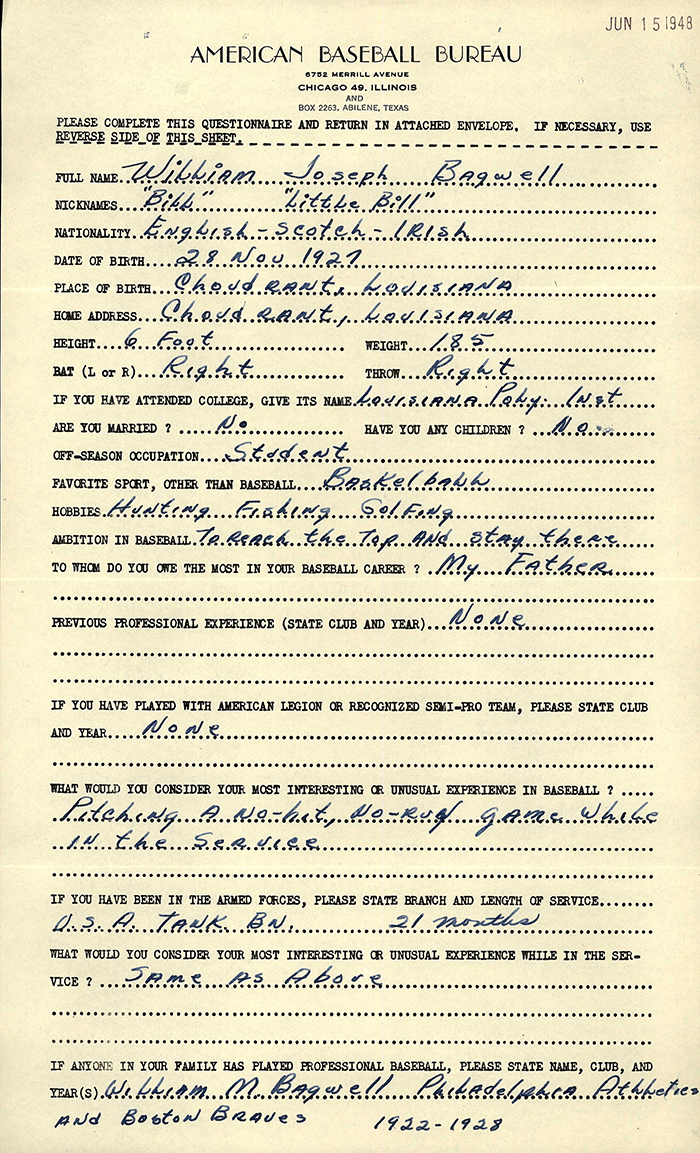 JUN 15 1948
AMERICAN BASEBALL BUREAU
6752 MERRILL AVENUE
CHICAGO 49, ILLINOIS
AND
BOX 2263, ABILENE, TEXAS
PLEASE COMPLETE THIS QUESTIONNAIRE AND RETURN IN ATTACHED ENVELOPE. IF NECESSARY, USE
REVERSE SIDE OF THIS SHEET.
FULL NAME William Joseph Bagwell
NICKNAMES "Bill" "Little Bill"
NATIONALITY English-Scotch-Irish
DATE OF BIRTH 28 Nov 1927
PLACE OF BIRTH Choudrant, Louisiana
HOME ADDRESS Choudrant, Louisiana
HEIGHT 6 Foot WEIGHT 185
BAT (L or R) Right THROW Right
IF YOU HAVE ATTENDED COLLEGE, GIVE ITS NAME Louisiana Poly. Inst
ARE YOU MARRIED ? No HAVE YOU ANY CHILDREN ? No
OFF-SEASON OCCUPATION Student
FAVORITE SPORT, OTHER THAN BASEBALL Basketball
HOBBIES Hunting Fishing Golfing
AMBITION IN BASEBALL To reach the Top and stay there
TO WHOM DO YOU OWE THE MOST IN YOUR BASEBALL CAREER ? My Father
PREVIOUS PROFESSIONAL EXPERIENCE (STATE CLUB AND YEAR) None
IF YOU HAVE PLAYED WITH AMERICAN LEGION OR RECOGNIZED SEMI-PRO TEAM, PLEASE STATE CLUB
AND YEAR None
WHAT WOULD YOU CONSIDER YOUR MOST INTERESTING OR UNUSUAL EXPERIENCE IN BASEBALL ?
Pitching A No-hit, No-run game while
in the Service
IF YOU HAVE BEEN IN THE ARMED FORCES, PLEASE STATE BRANCH AND LENGTH OF SERVICE
U.S.A. TANK BN. 21 months
WHAT WOULD YOU CONSIDER YOUR MOST INTERESTING OR UNUSUAL EXPERIENCE WHILE IN THE SER-
VICE ? Same As Above
IF ANYONE IN YOUR FAMILY HAS PLAYED PROFESSIONAL BASEBALL, PLEASE STATE NAME, CLUB, AND
YEAR(S) William M. Bagwell Philadelphia Athletics
And Boston Braves 1922-1928